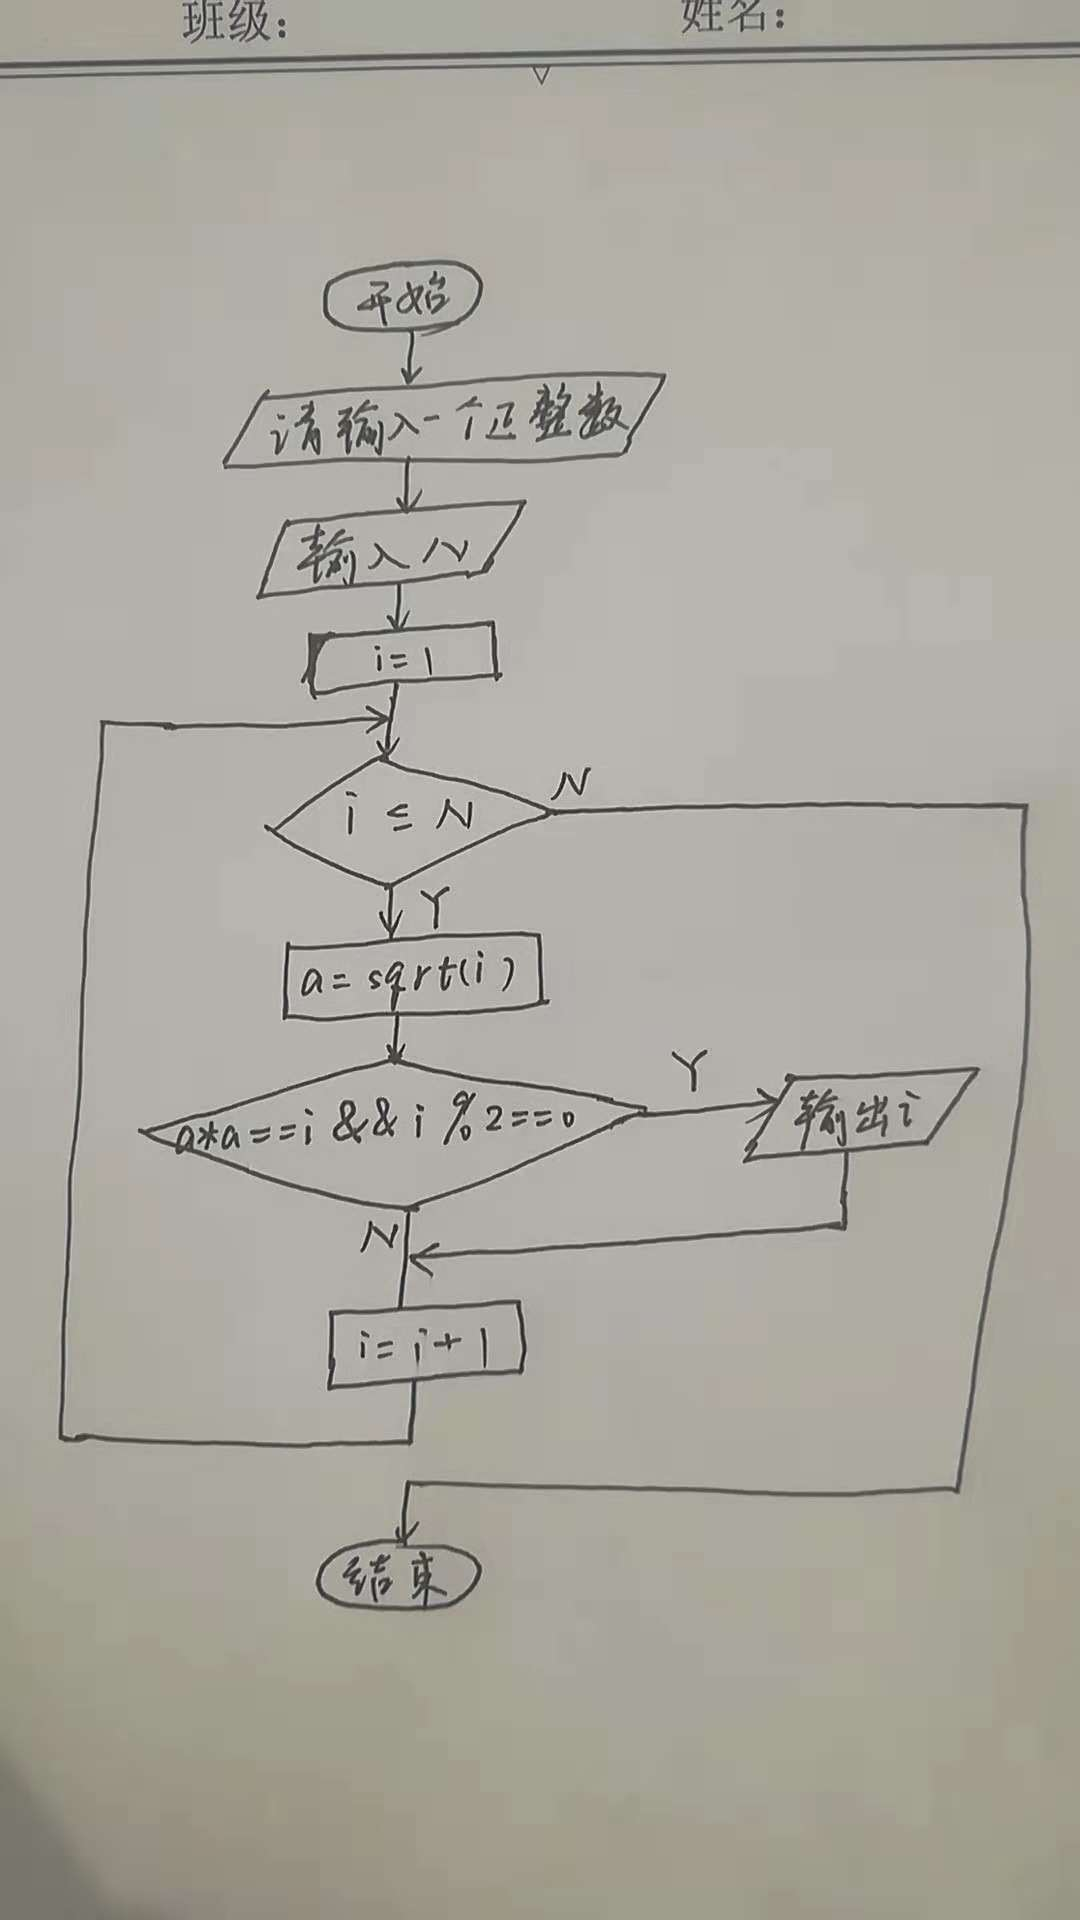 班级: 姓名:
开始
请输入一个正整数
输入N
i=1
i ≤ N
N
Y
a=sqrt(i)
a*a==i && i%2==0
Y
输出i
N
i=i+1
结束